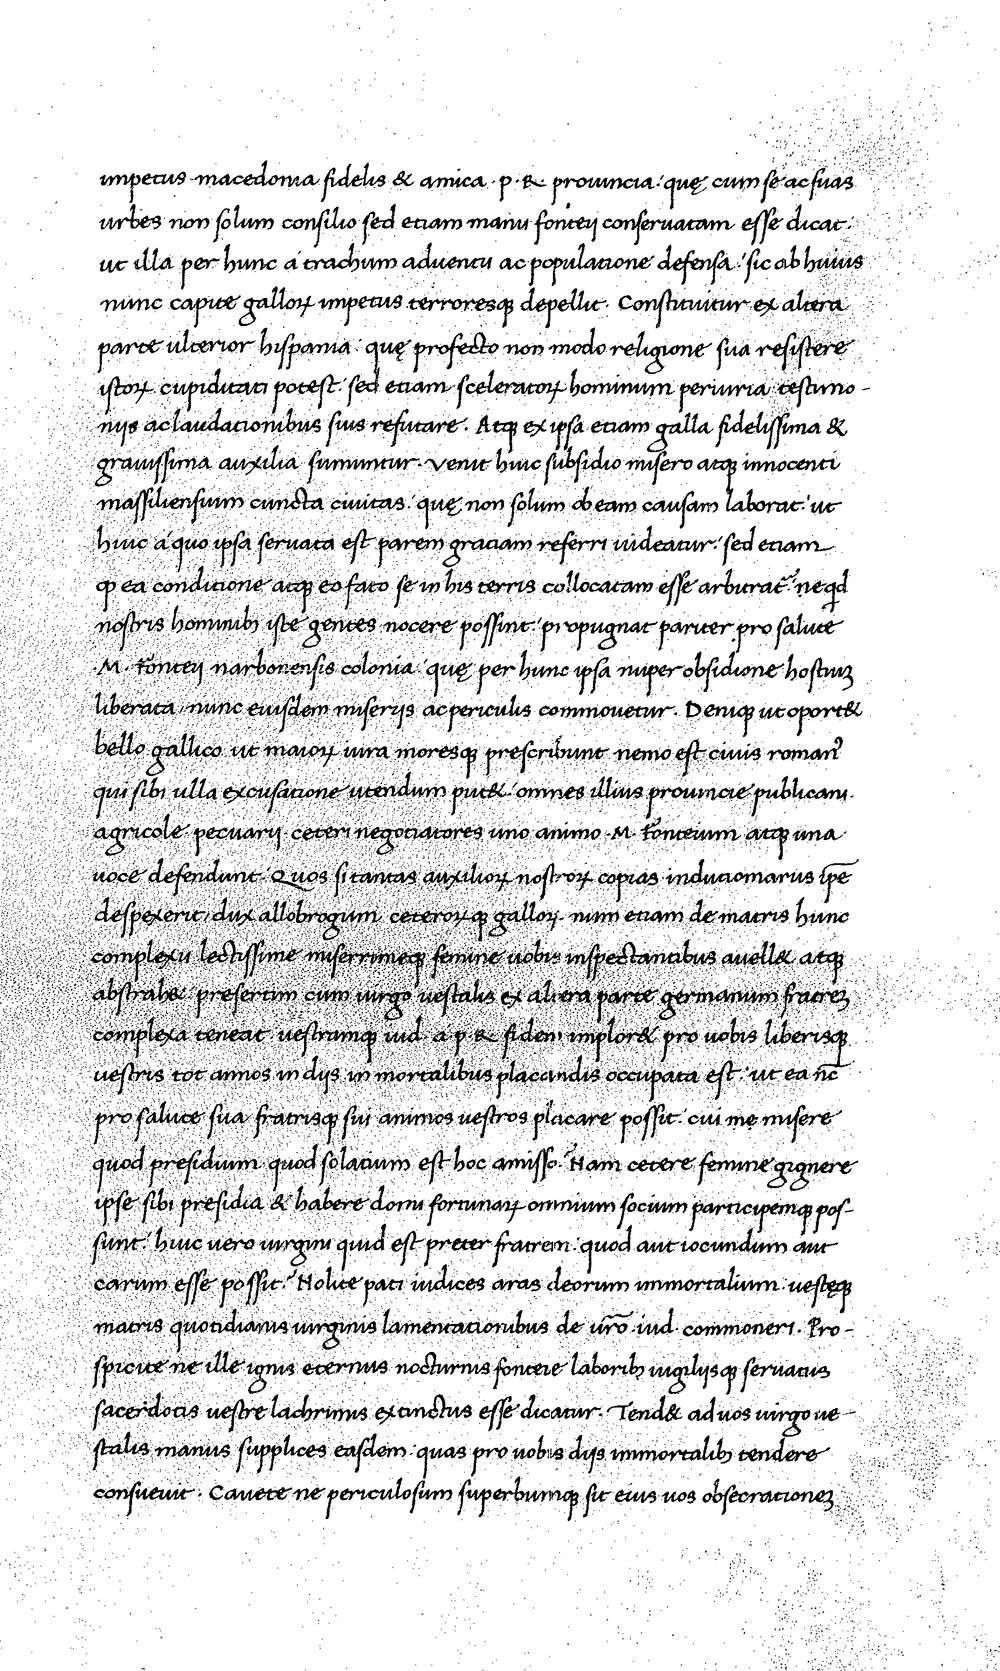 impetus macedonia fidelis & amica p. R. prouincia: quę cum se ac suas
urbes non solum consilio sed etiam manu fonteij conseruatam esse dicat:
ut illa per hunc a trachum aduentu ac populatione defensa: sic ab huius
nunc capite galloꝝ impetus terroresqꝫ depellit. Constituitur ex altera
parte ulterior hispania: quę profecto non modo religione sua resistere
istoꝝ cupiditati potest: sed etiam sceleratoꝝ hominum periuria testimo-
nijs ac laudationibus suis refutare. Atqꝫ ex ipsa etiam galla fidelissima &
grauissima auxilia sumuntur. Venit huic subsidio misero atqꝫ innocenti
massiliensium cuncta ciuitas: quę non solum ob eam causam laborat: ut
huic a quo ipsa seruata est parem gratiam referri uideatur: sed etiam
ꝙ ea conditione atqꝫ eo fato se in his terris collocatam esse arbitrat̃: ne qd
nostris hominibꝫ iste gentes nocere possint: propugnat pariter pro salute
.M. Fonteij narbonensis colonia: quę per hunc ipsa nuper obsidione hostiuꝫ
liberata, nunc eiusdem miserijs ac periculis commouetur. Deniqꝫ ut oport&
bello gallico ut maioꝝ iura moresqꝫ prescribunt nemo est ciuis romanꝰ
qui sibi ulla excusatione utendum put&: omnes illius prouincie publicani.
agricole pecuarij ceteri negotiatores uno animo .M. Fonteium atqꝫ una
uoce defendunt. Quos si tantas auxilioꝝ nostroꝝ copias indutiomarus ip̄e
despexerit, dux allobrogum ceteroꝝqꝫ galloꝝ. num etiam de matris hunc
complexu lectissime miserrimeqꝫ femine uobis inspectantibus auell& atqꝫ
abstrah& presertim cum uirgo uestalis ex altera parte germanum fratreꝫ
complexa teneat uestramqꝫ iud. a p. R. fidem implor& pro uobis liberisqꝫ
uestris tot annos in dijs in mortalibus placandis occupata est: ut ea nc̄
pro salute sua fratrisqꝫ sui animos uestros placare possit. cui me misere
quod presidium quod solatium est hoc amisso? Nam cetere femine gignere
ipse sibi presidia & habere domi fortunaꝝ omnium socium participemqꝫ pos-
sunt: huic uero uirgini quid est preter fratrem: quod aut iocundum aut
carum esse possit? Nolite pati iudices aras deorum immortalium uestęqꝫ
matris quotidianis uirginis lamentationibus de ur̄o iud. commoneri. Pro-
spicite ne ille ignis eternus nocturnis fonteie laboribꝫ uigilijsqꝫ seruatus
sacerdotis uestre lachrimis extinctus esse dicatur. Tend& ad uos uirgo ue-
stalis manus supplices easdem: quas pro uobis dijs immortalibꝫ tendere
consueuit. Cauete ne periculosum superbumqꝫ sit eius uos obsecrationeꝫ